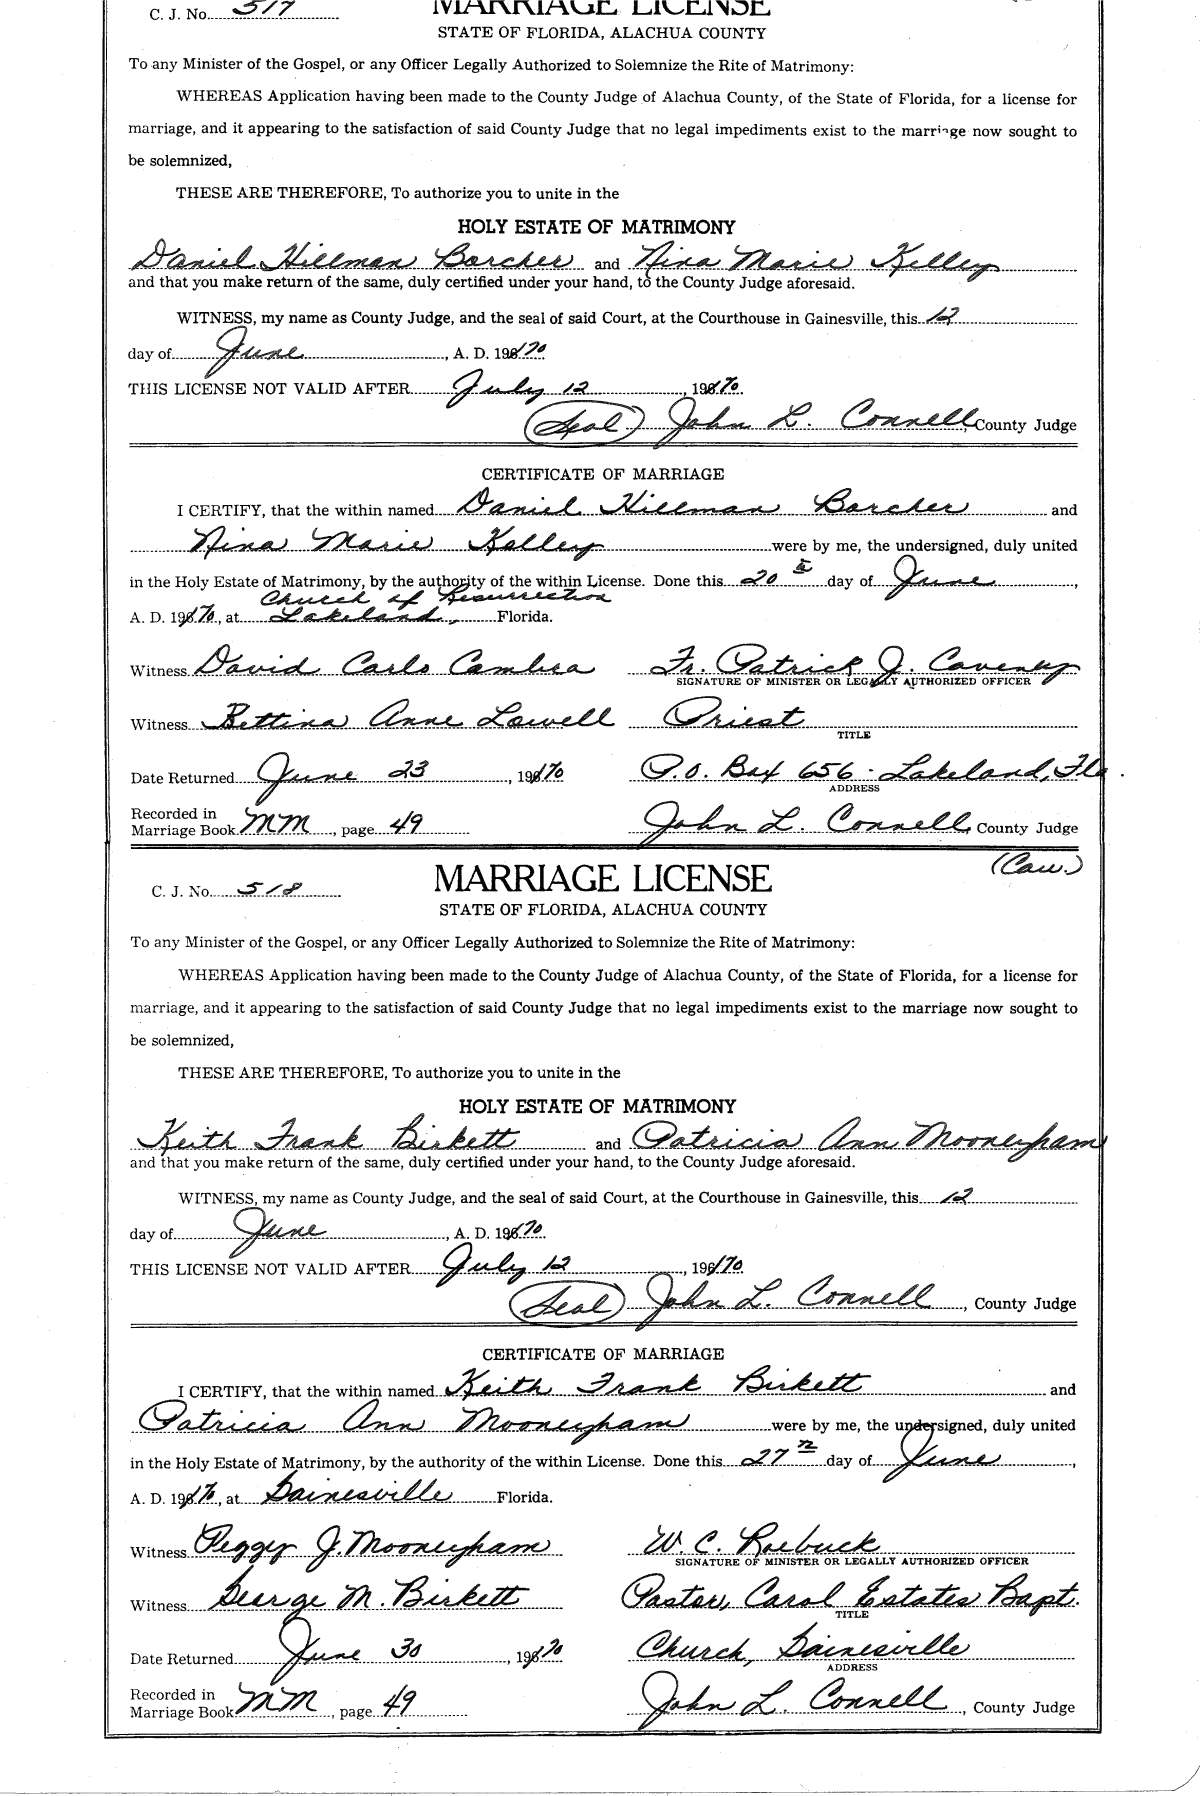 C. J. No. 517 MARRIAGE LICENSE
STATE OF FLORIDA, ALACHUA COUNTY
To any Minister of the Gospel, or any Officer Legally Authorized to Solemnize the Rite of Matrimony:
WHEREAS Application having been made to the County Judge of Alachua County, of the State of Florida, for a license for
marriage, and it appearing to the satisfaction of said County Judge that no legal impediments exist to the marriage now sought to
be solemnized,
THESE ARE THEREFORE, To authorize you to unite in the
HOLY ESTATE OF MATRIMONY
Daniel Hillman Borcher and Nina Marie Kelley
and that you make return of the same, duly certified under your hand, to the County Judge aforesaid.
WITNESS, my name as County Judge, and the seal of said Court, at the Courthouse in Gainesville, this 12
day of June, A. D. 1970.
THIS LICENSE NOT VALID AFTER July 12, 1970.
(Seal) John L. Connell, County Judge
CERTIFICATE OF MARRIAGE
I CERTIFY, that the within named Daniel Hillman Borcher and
Nina Marie Kelley were by me, the undersigned, duly united
in the Holy Estate of Matrimony, by the authority of the within License. Done this 20th day of June,
Church of Resurrection
A. D. 1970, at Lakeland, Florida.
Witness David Carlo Cambra Fr. Patrick J. Caveney
SIGNATURE OF MINISTER OR LEGALLY AUTHORIZED OFFICER
Witness Bettina Anne Lowell Priest
TITLE
Date Returned June 23, 1970 P.O. Box 656 - Lakeland, Fla.
ADDRESS
Recorded in
Marriage Book MM, page 49 John L. Connell, County Judge
(Cau.)
C. J. No. 518 MARRIAGE LICENSE
STATE OF FLORIDA, ALACHUA COUNTY
To any Minister of the Gospel, or any Officer Legally Authorized to Solemnize the Rite of Matrimony:
WHEREAS Application having been made to the County Judge of Alachua County, of the State of Florida, for a license for
marriage, and it appearing to the satisfaction of said County Judge that no legal impediments exist to the marriage now sought to
be solemnized,
THESE ARE THEREFORE, To authorize you to unite in the
HOLY ESTATE OF MATRIMONY
Keith Frank Birkett and Patricia Ann Mooneyham
and that you make return of the same, duly certified under your hand, to the County Judge aforesaid.
WITNESS, my name as County Judge, and the seal of said Court, at the Courthouse in Gainesville, this 12
day of June, A. D. 1970.
THIS LICENSE NOT VALID AFTER July 12, 1970.
(Seal) John L. Connell, County Judge
CERTIFICATE OF MARRIAGE
I CERTIFY, that the within named Keith Frank Birkett and
Patricia Ann Mooneyham were by me, the undersigned, duly united
in the Holy Estate of Matrimony, by the authority of the within License. Done this 27th day of June,
A. D. 1970, at Gainesville Florida.
Witness Peggy J. Mooneyham W. C. Roebuck
SIGNATURE OF MINISTER OR LEGALLY AUTHORIZED OFFICER
Witness George M. Birkett Pastor, Carol Estates Bapt.
TITLE
Date Returned June 30, 1970 Church, Gainesville
ADDRESS
Recorded in
Marriage Book MM, page 49 John L. Connell, County Judge